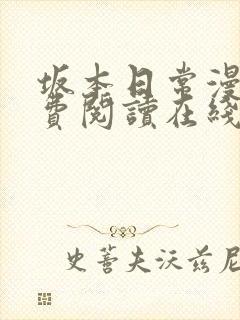 坂本日常漫
費閱讀在綫
史蒂夫沃兹尼